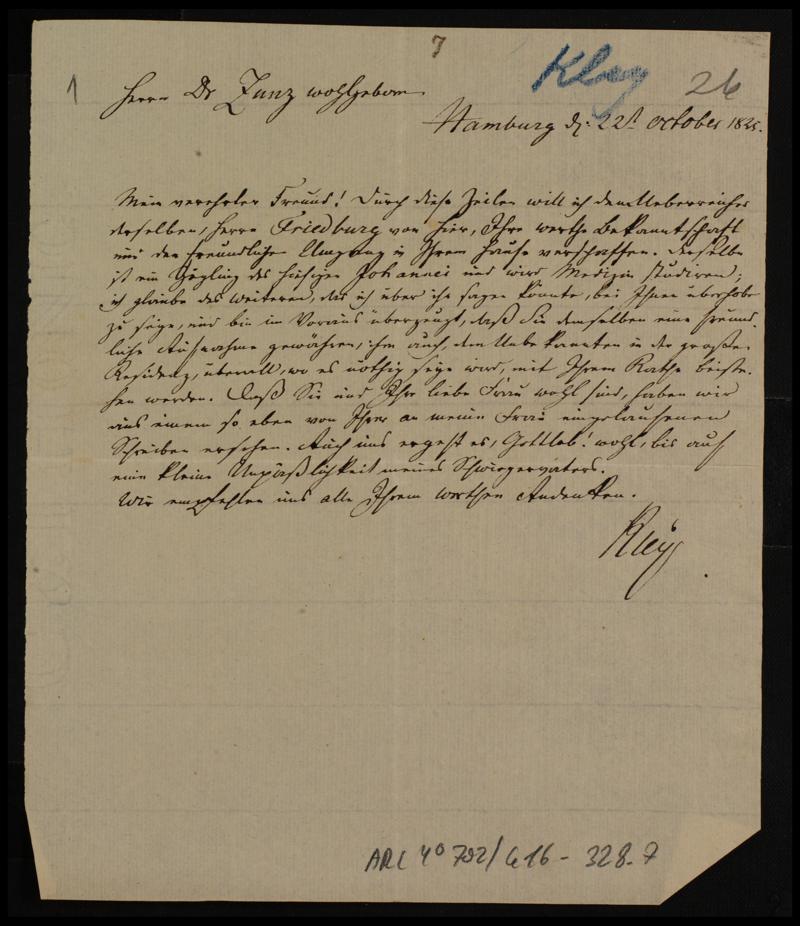 7
Kley
26
1
Herrn Dr Zunz wohlgeborn
Hamburg d: 22t October 182
Mein verehrter Freund! Durch diese Zeilen will ich dem Ueberreicher
derselben, Herrn Friedburg von hier, Ihre werthe Bekanntschaft
und den freundlichen Umgang in Ihrem Hause verschaffen. Derselbe
ist ein Zögling des hiesigen Johannei und wird Medizin studiren;
ich glaube des weiteren, das ich über ihn sagen könnte, bei Ihnen überhoben
zu seyn, und bin im Voraus überzeugt, daß Sie demselben eine freund-
liche Aufnahme gewähren, ihm auch, dem Unbekannten in der großen
Residenz, überall, wo es nöthig seyn wird, mit Ihrem Rathe beiste-
hen werden. Daß Sie und Ihr liebe Frau wohl sind, haben wir
aus einem so eben von Ihrer an meine Frau eingelaufenen
Schreiben ersehen. Auch uns ergeht es, Gottlob! wohl, bis auf
eine kleine Unpäßlichkeit meines Schwiegervaters.
Wir empfehlen uns alle Ihrem werthen Andenken.
Kley
ARC 4o 792/G16-328.7